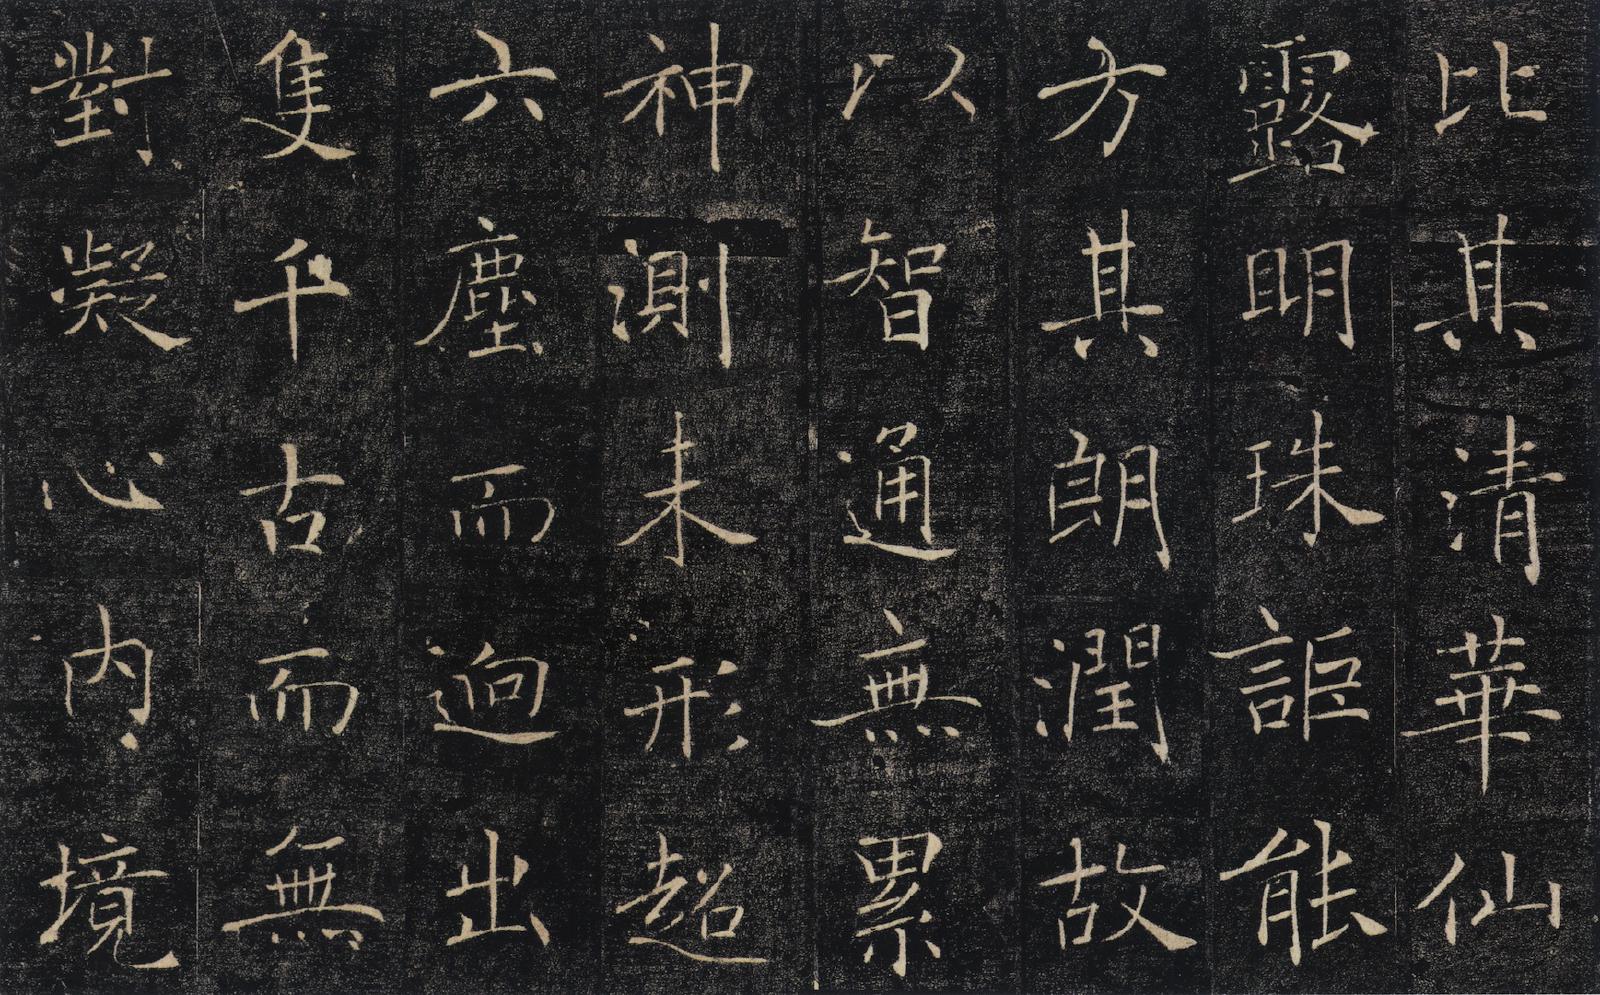 比其清華仙
露明珠詎能
方其朗潤故
以智通無累
神測未形超
六塵而迥出
隻千古而無
對凝心內境